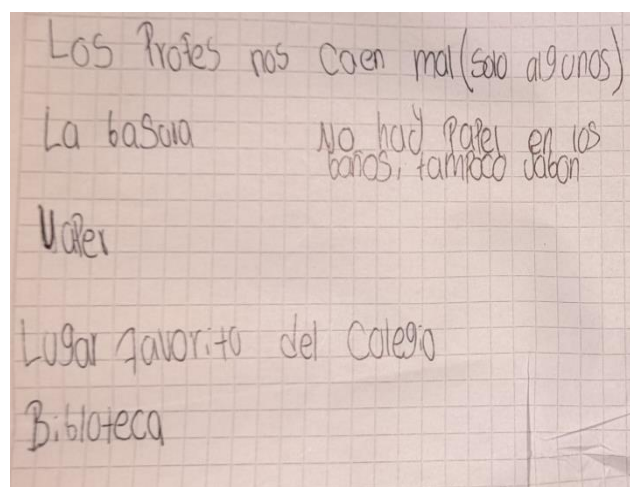 Los Profes nos caen mal (solo algunos)
La basura No hay Papel en los
baños, tampoco Jabon
Vaper
Lugar favorito del Colegio
Biblioteca